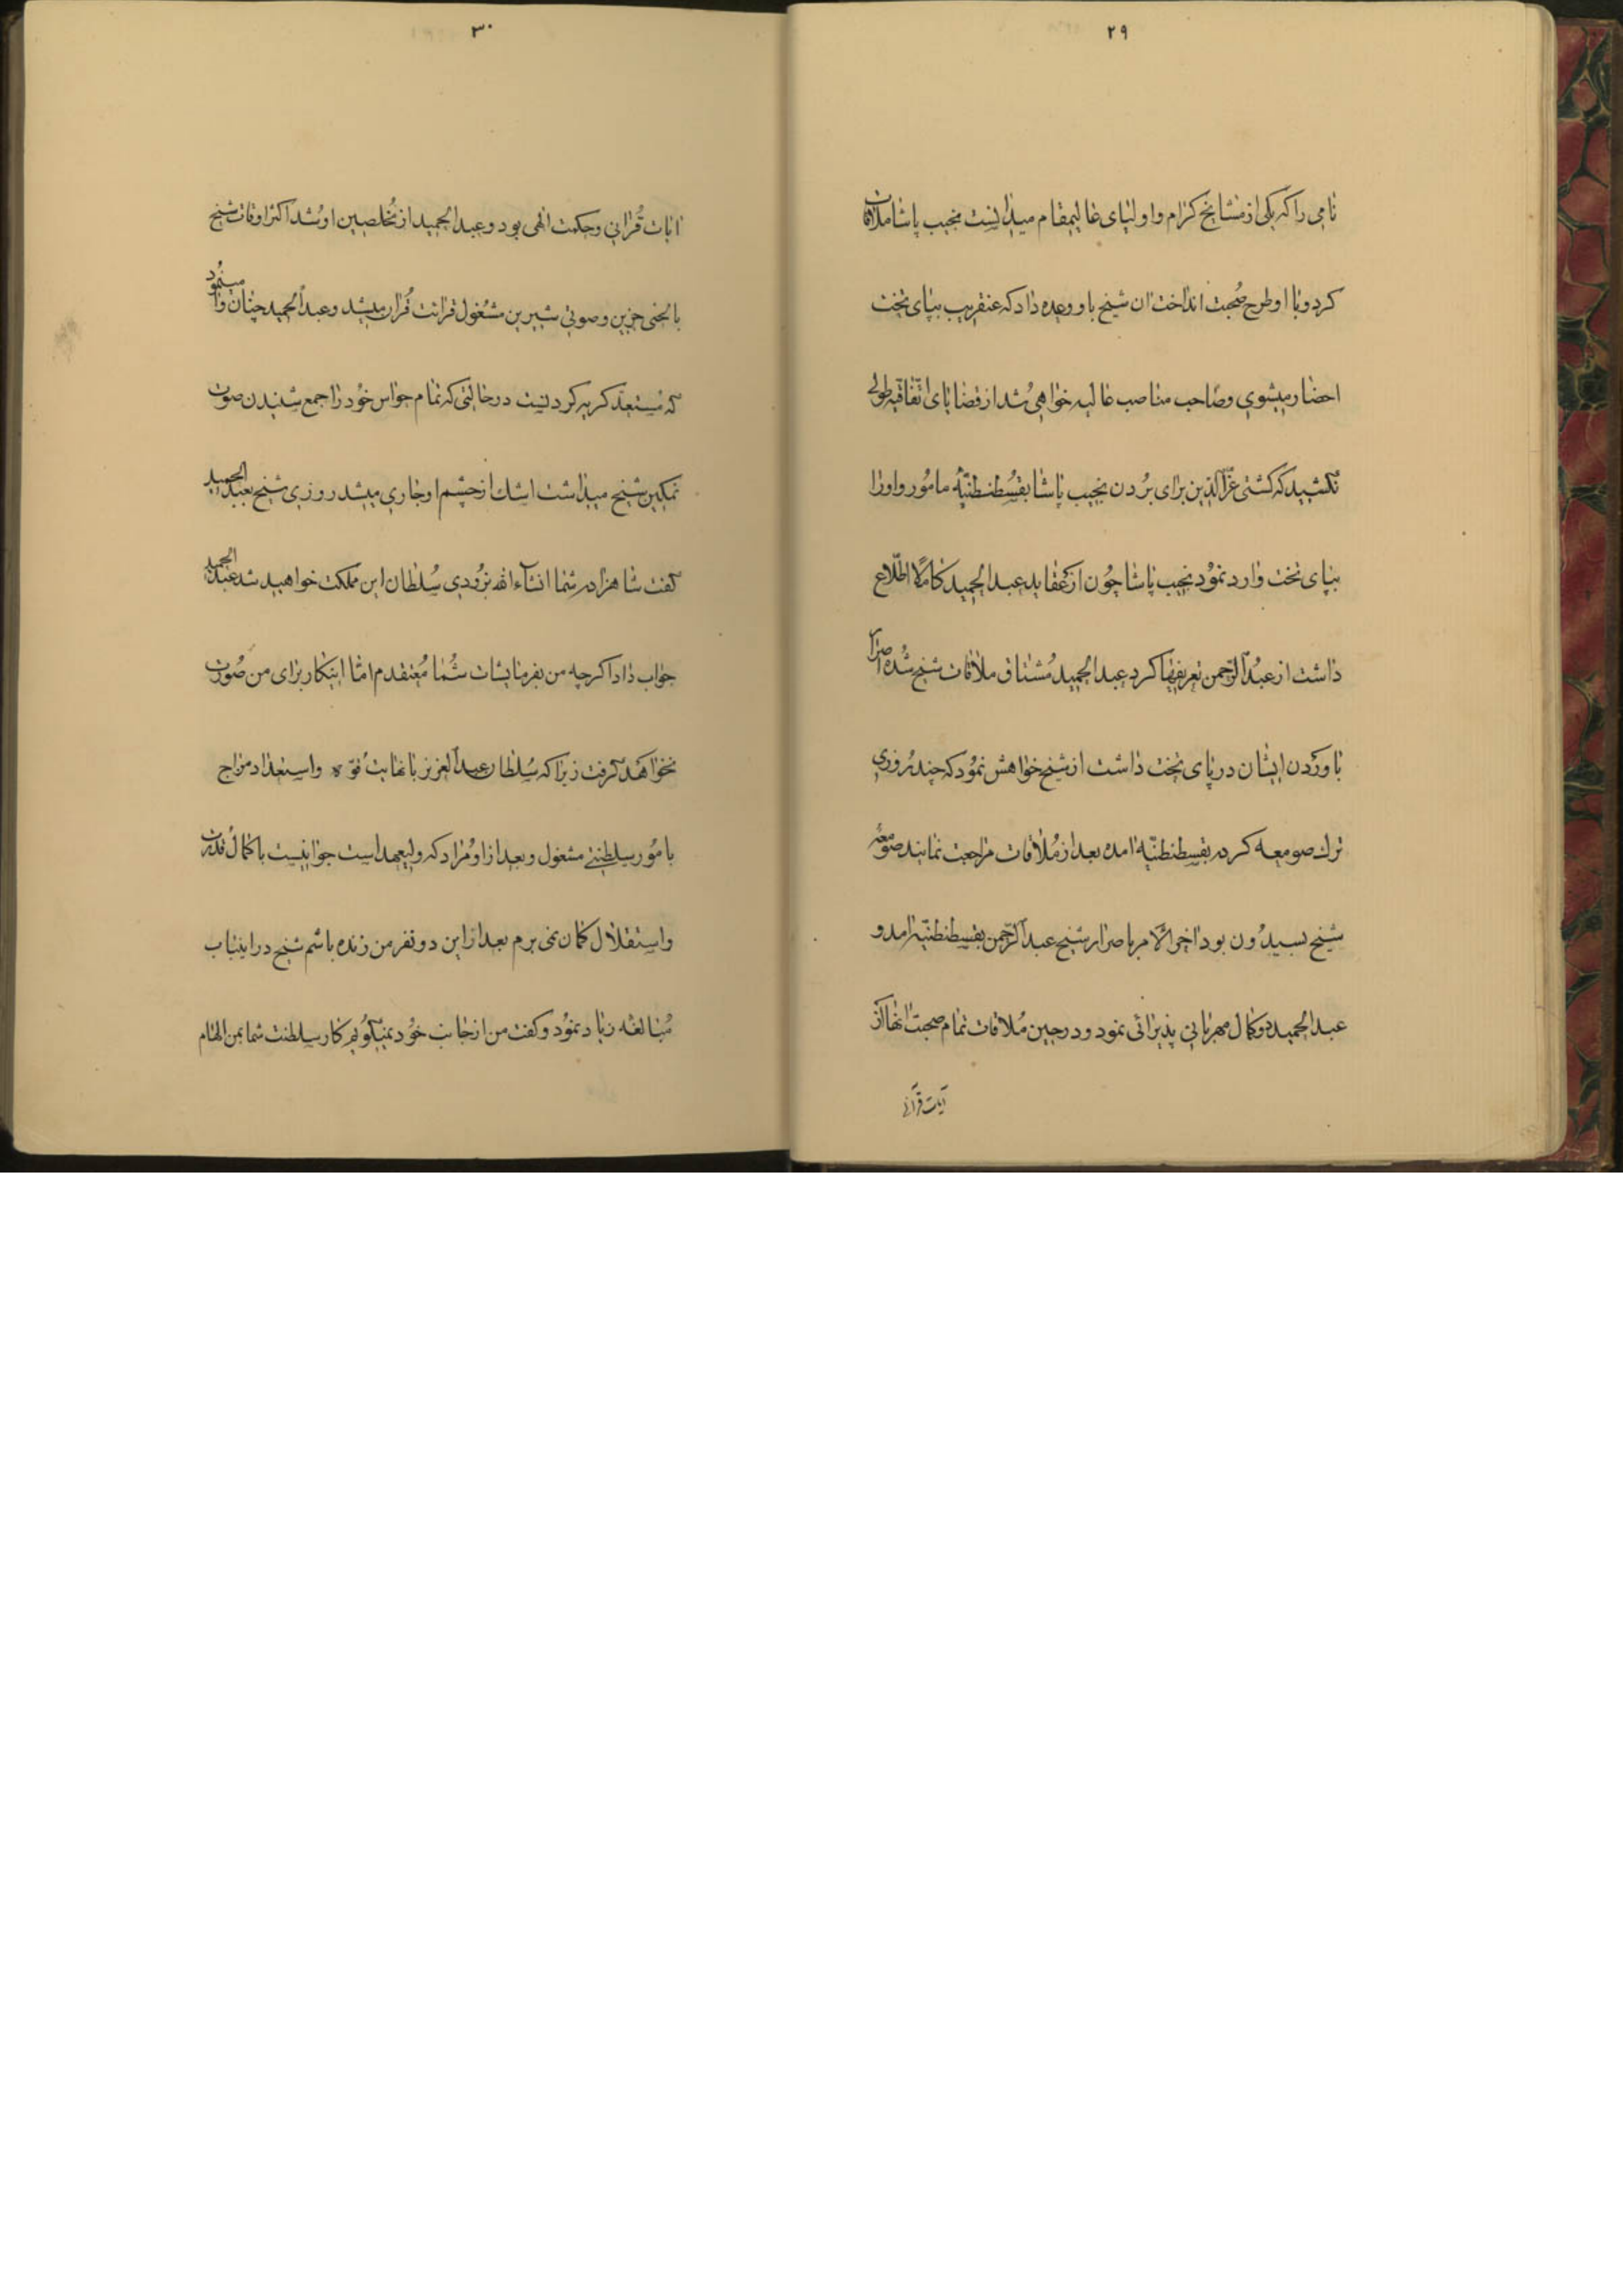 ۲۹
نامی را که یکی از مشایخ کرام و اولیای عالیمقام میدانست نجیب پاشا ملاقات
کرد و با او طرح صحبت انداخت ان شیخ باو وعده داد که عنقریب بپای تخت
احضار میشوی و صاحب مناصب عالیه خواهی شد از قضایای اتفاقیه طولی
نکشید که کشتی عزالدین برای بردن نجیب پاشا بقسطنطنیّه مامور و اورا
بپای تخت وارد نمود نجیب پاشا چون از عقاید عبدالحمید کاملا اطّلاع
داشت از عبدالرّحمن تعریفها کرد عبدالحمید مشتاق ملاقات شیخ شده اصرار
باوردن ایشان در پای تخت داشت از شیخ خواهش نمود که چند روزی
ترک صومعه کرده بقسطنطنیّه امده بعد از ملاقات مراجعت نمایند صومعهٔ
شیخ بسیدون بود اخر الامر باصرار شیخ عبدالرّحمن بقسطنطنیّه امد و
عبدالحمید و کمال مهربانی پذیرائی نمود و در حین ملاقات تمام صحبت انها از
آیات قرآنی
۳۰
ایات قرانی و حکمت الهی بود و عبدالحمید از مخلصین او شد اکثر اوقات شیخ
با لحنی حزین و صوتی شیرین مشغول قرائت قران میشد و عبدالحمید چنان وا مینمود
که مستعد کریه کردنست در حالتی که تمام حواس خود را جمع شنیدن صوت
نمکین شیخ میداشت اشک از چشم او جاری میشد روزی شیخ بعبدالحمید
کفت شاهزاده شما انشآء الله بزودی سلطان این مملکت خواهید شد عبدالحمید
جواب داد اکرچه من بفرمایشات شما معتقدم امّا اینکار برای من صورت
نخواهد کرفت زیرا که سلطان عبدالعزیز با نهایت قوّه و استعداد مزاج
بامور سلطنتی مشغول و بعد از او مراد که ولیعهد است جوانیست با کمال قدرت
و استقلال کمان نمی برم بعد از این دو نفر من زنده باشم شیخ در اینباب
مبالغه زیاد نمود و کفت من از جانب خود نمیکویم کار سلطنت شما بمن الهام